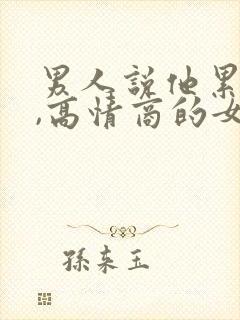 男人說他累
,高情商的女
孫來玉